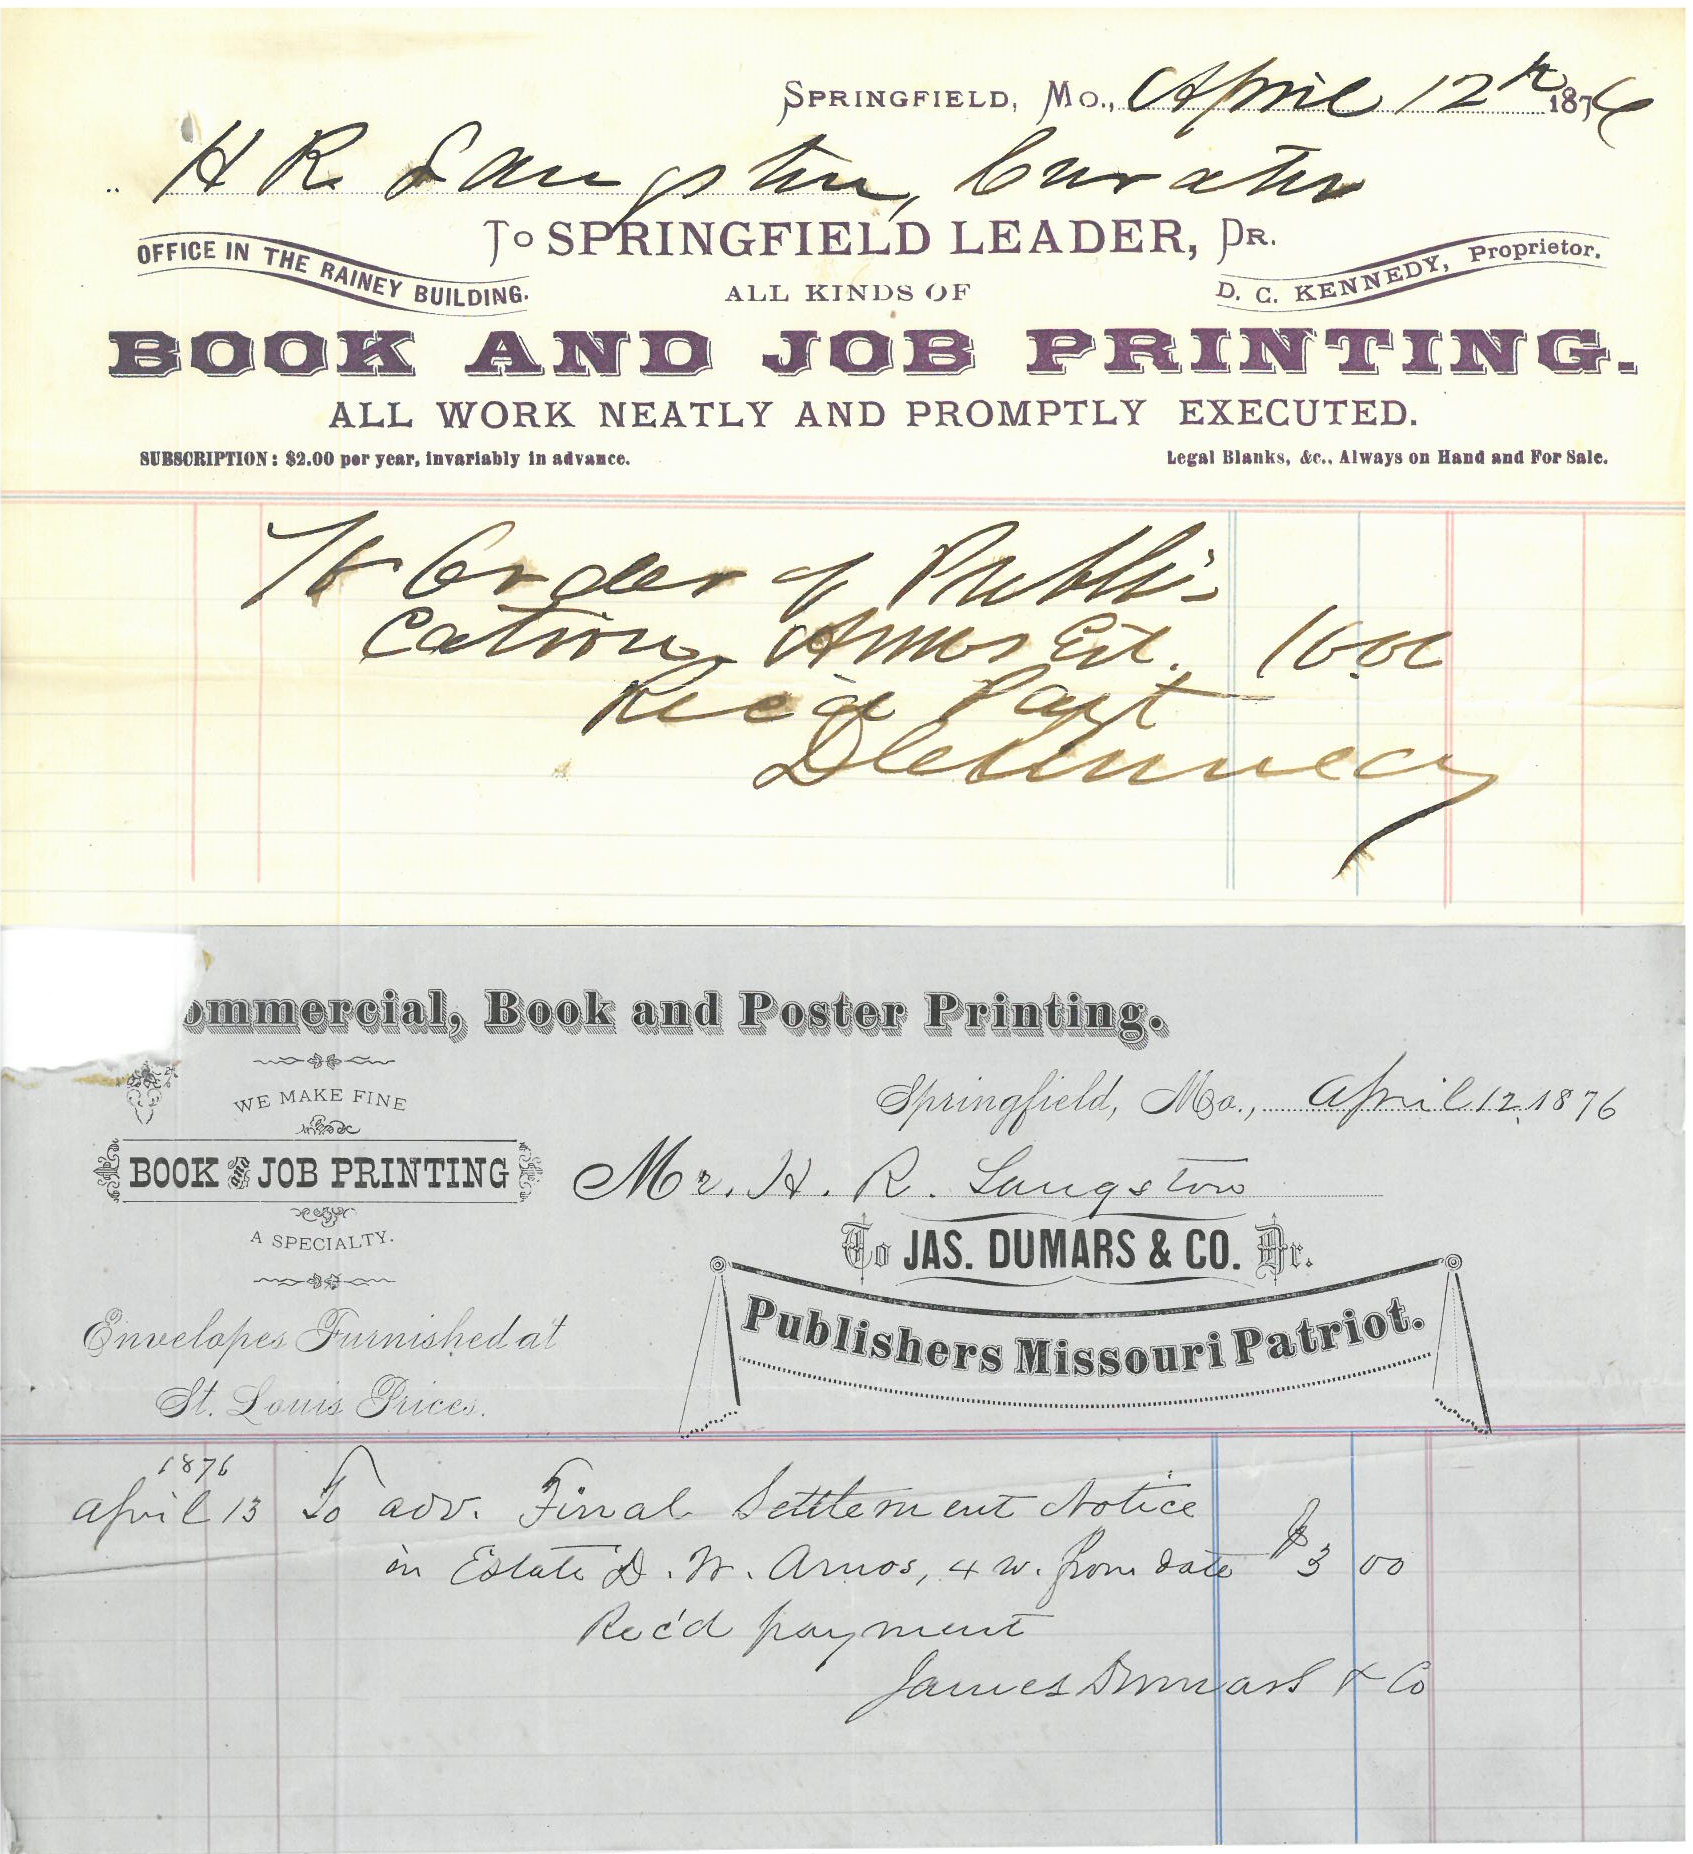 SPRINGFIELD, MO., April 12th 1876
H R Langston, Curator
To SPRINGFIELD LEADER, DR.
OFFICE IN THE RAINEY BUILDING.
D. C. KENNEDY, Proprietor.
ALL KINDS OF
BOOK AND JOB PRINTING.
ALL WORK NEATLY AND PROMPTLY EXECUTED.
SUBSCRIPTION: $2.00 per year, invariably in advance.
Legal Blanks, &c., Always on Hand and For Sale.
To Order of Publi-
cation Amos Est. 10.00
Rec'd Payt
D C Kennedy
ommercial, Book and Poster Printing.
WE MAKE FINE
BOOK and JOB PRINTING
A SPECIALTY.
Envelopes Furnished at
St. Louis Prices.
Springfield, Mo., April 12, 1876
Mr. H. R. Langston
To JAS. DUMARS & CO. Dr.
Publishers Missouri Patriot.
1876
April 13 To adv. Final Settlement Notice
in Estate D. W. Amos, 4 w. from date $3 00
Rec'd payment
James Dumars & Co